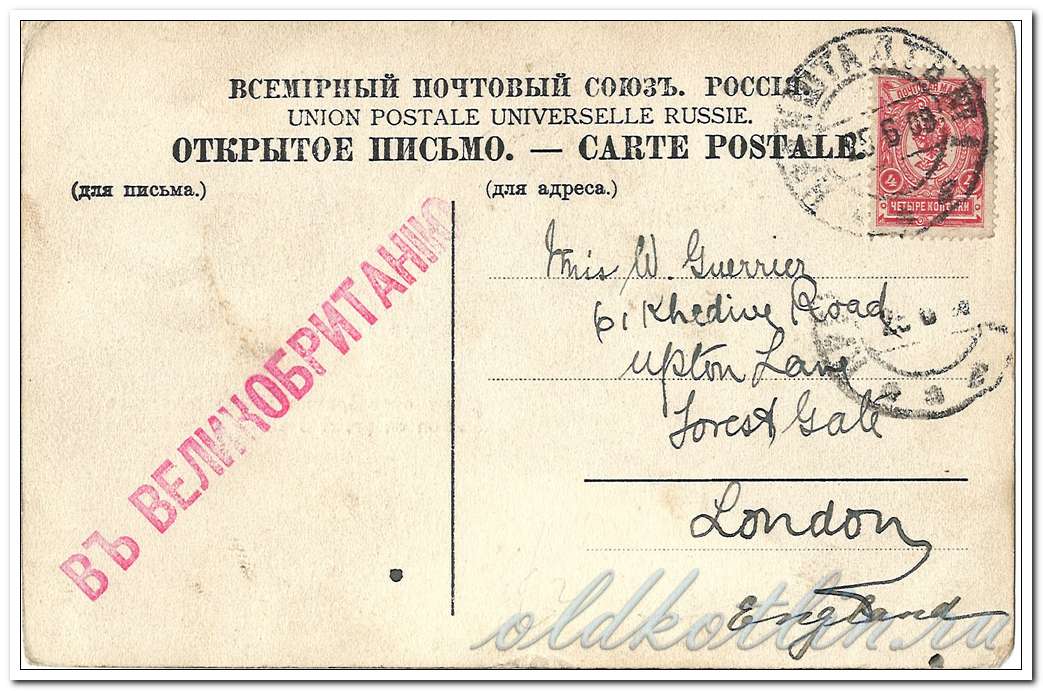 ВСЕМІРНЫЙ ПОЧТОВЫЙ СОЮЗЪ. РОССІЯ.
UNION POSTALE UNIVERSELLE RUSSIE.
ОТКРЫТОЕ ПИСЬМО. — CARTE POSTALE.
(для письма.)
(для адреса.)
25 6 09
4
ЧЕТЫРЕ КОПѢЙКИ
ВЪ ВЕЛИКОБРИТАНІЮ
Miss W. Guerrier
61 Khedive Road
Upton Lane
Forest Gate
London
England
oldkotlin.ru